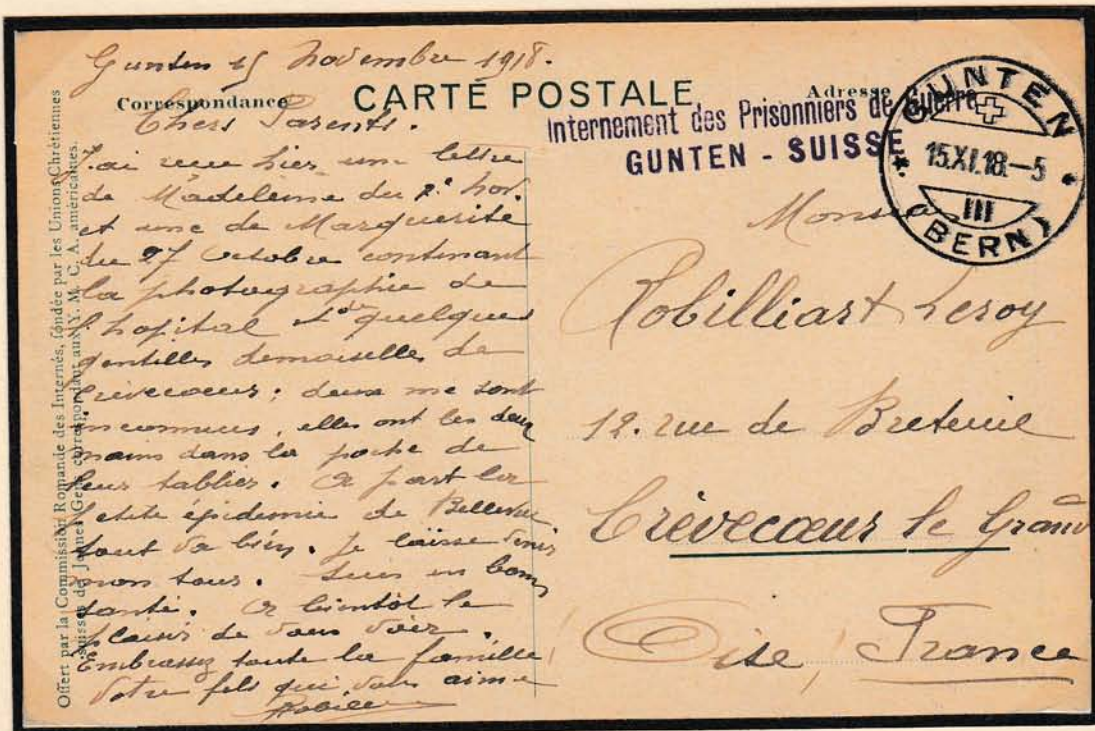 Gunten 15 Novembre 1918.
Correspondance
CARTE POSTALE
Adresse
Internement des Prisonniers de Guerre
GUNTEN - SUISSE
GUNTEN
15.XI.18.-5
III
(BERN)
Chers Parents.
J'ai reçu hier une lettre
de Madeleine du 2e Nov.
et une de Marguerite
du 27 Octobre contenant
la photographie de
l'hopital et de quelques
gentilles demoiselles de
Crèvecoeur; deux me sont
inconnues, elles ont les deux
mains dans la poche de
leur tablier. A part la
petite épidemie de Bellevue
tout va bien. Je laisse venir
mon tour. Suis en bonne
santé. A bientôt le
plaisir de vous voir.
Embrassez toute la famille
Votre fils qui vous aime
Monsieur
Robilliart Leroy
12. rue de Breteuil
Crèvecoeur le Grand
Oise, France
Offert par la Commission Romande des Internés, fondée par les Unions Chrétiennes
suisses de Jeunes Gens correspondant aux Y. M. C. A. américaines.